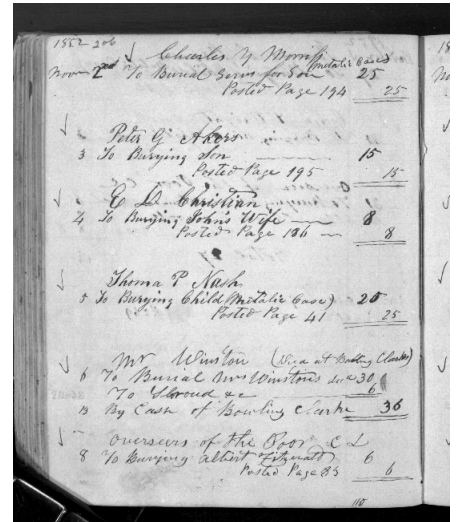 1852 206
Charles Y Morriss
Nov 2nd To Burial Servs for Son (Metalic Case) 25
Posted Page 194 25
Peter G Akers
3 To Burying Son 15
Posted Page 195 15
E D Christian
4 To Burying John's Wife 8
Posted Page 186 8
Thomas P Nash
5 To Burying Child (Metalic Case) 25
Posted Page 41 25
Mr Winston (Died at Bowling Clarks)
6 To Burial Mrs Winston's 30
To Shroud &c 6
13 By Cash of Bowling Clarke 36
Overseers of the Poor
8 To Burying Albert Fitzgerald 6
Posted Page 85 6
110